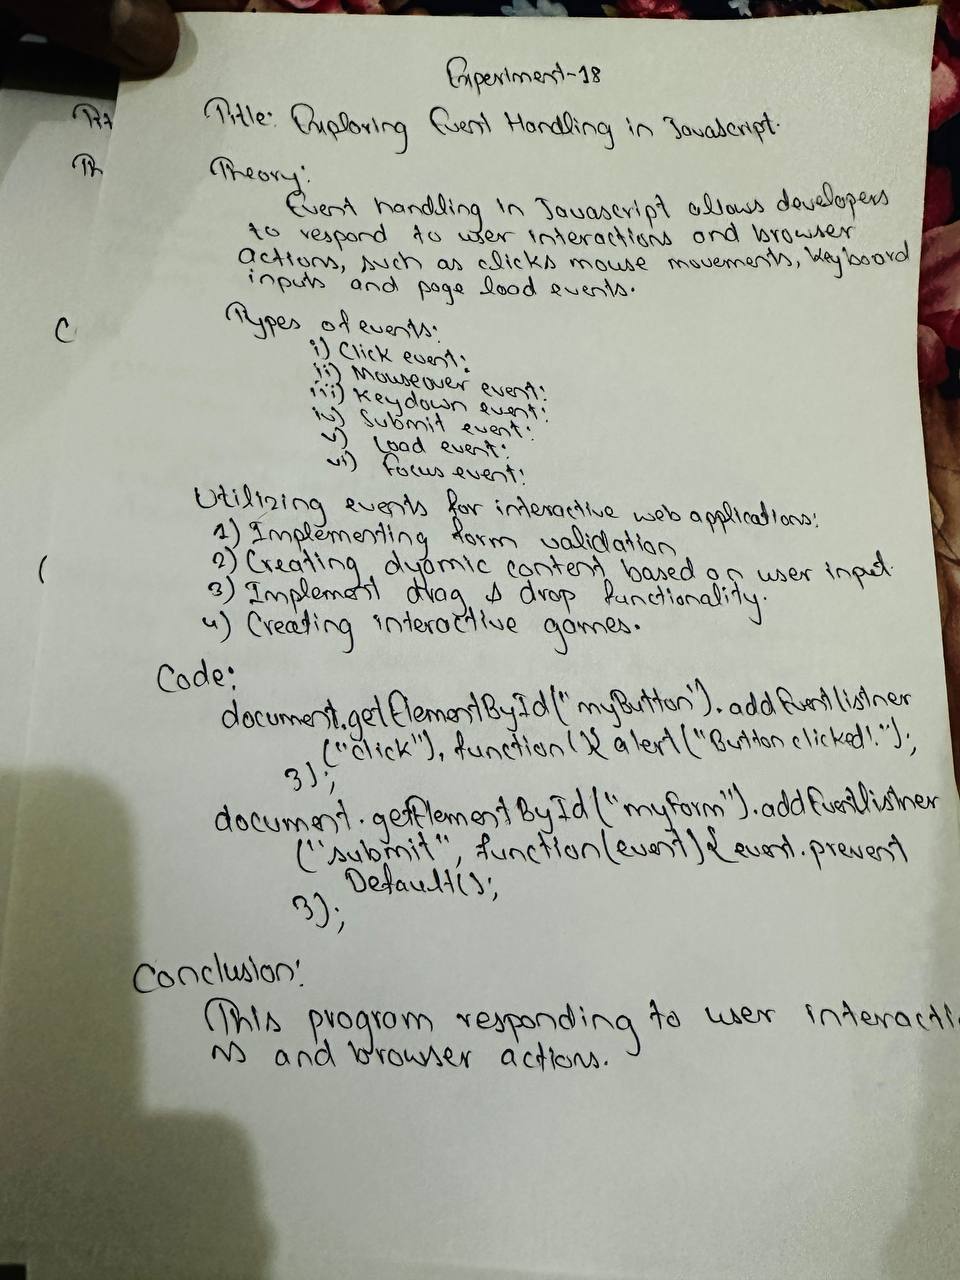 Experiment-18
Title: Exploring Event Handling in Javascript.
Theory:
Event handling in Javascript allows developers
to respond to user interactions and browser
actions, such as clicks mouse movements, keyboard
inputs and page load events.
Types of events:
i) Click event:
ii) Mouseover event:
iii) Keydown event:
iv) Submit event:
v) Load event:
vi) Focus event:
Utilizing events for interactive web applications:
1) Implementing form validation
2) Creating dyamic content based on user input.
3) Implement drag & drop functionality.
4) Creating interactive games.
Code:
document.getElementById("myButton").addEventlistner
("click"), function(){ alert("Button clicked!.");
});
document.getElementById("myform").addEventlistner
("submit", function(event){ event.prevent
Default();
});
Conclusion:
This program responding to user interacti
ns and browser actions.
Tit
Th
C
(